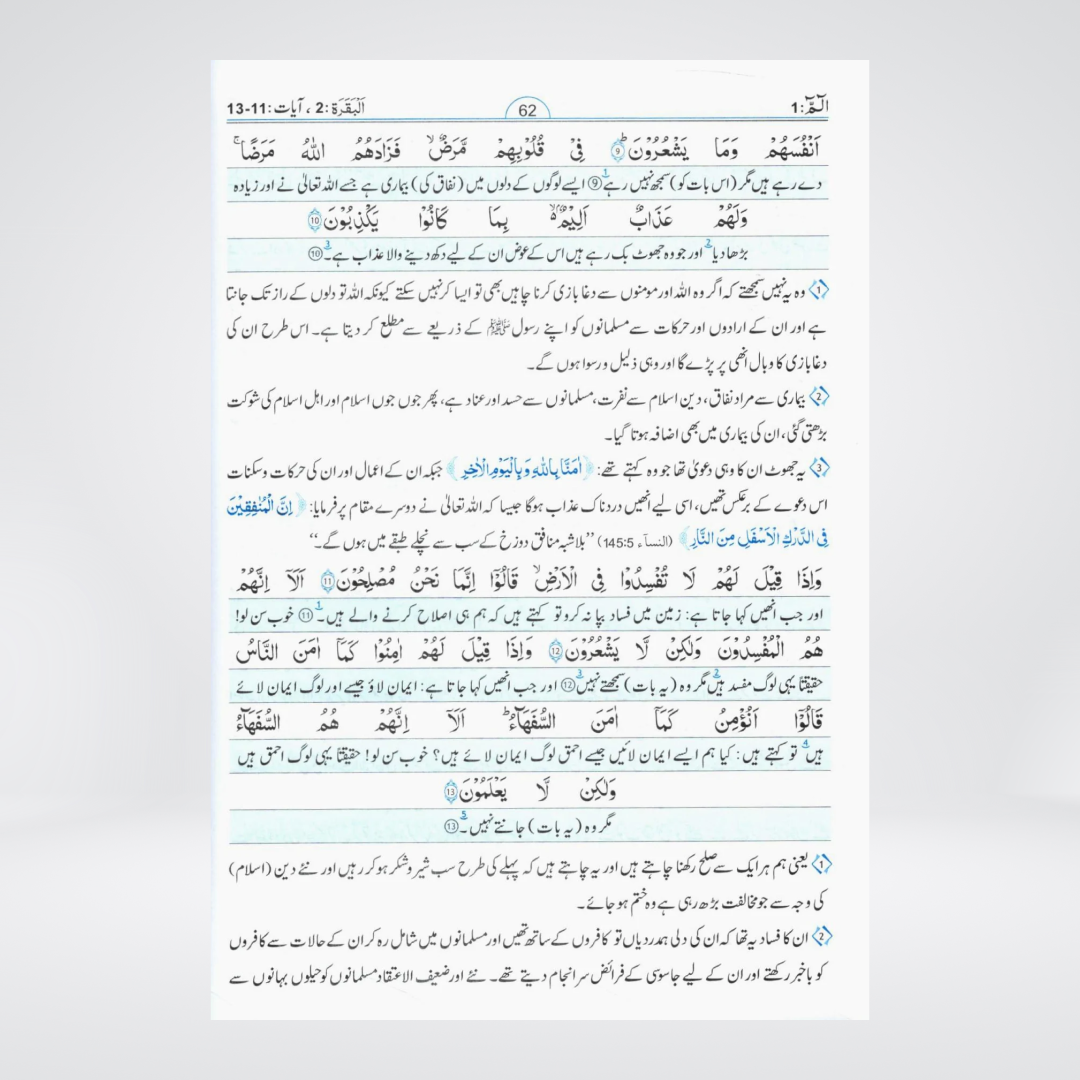 الٓمّٓ:1 62 اَلْبَقَرَة:2 ، آیات:11-13
اَنْفُسَهُمْ وَمَا يَشْعُرُوْنَ ؕ⑨ فِيْ قُلُوْبِهِمْ مَّرَضٌ ۙ فَزَادَهُمُ اللّٰهُ مَرَضًا ۚ
دے رہے ہیں مگر (اس بات کو) سمجھ نہیں رہے۔1 ⑨ ایسے لوگوں کے دلوں میں (نفاق کی) بیماری ہے جسے اللہ تعالیٰ نے اور زیادہ
وَلَهُمْ عَذَابٌ اَلِيْمٌۢ ۙ بِمَا كَانُوْا يَكْذِبُوْنَ ⑩
بڑھا دیا2 اور جو وہ جھوٹ بک رہے ہیں اس کے عوض ان کے لیے دکھ دینے والا عذاب ہے۔3 ⑩
1 وہ یہ نہیں سمجھتے کہ اگر وہ اللہ اور مومنوں سے دغا بازی کرنا چاہیں بھی تو ایسا کر نہیں سکتے کیونکہ اللہ تو دلوں کے راز تک جانتا
ہے اور ان کے ارادوں اور حرکات سے مسلمانوں کو اپنے رسول ﷺ کے ذریعے سے مطلع کر دیتا ہے۔ اس طرح ان کی
دغا بازی کا وبال انھی پر پڑے گا اور وہی ذلیل و رسوا ہوں گے۔
2 بیماری سے مراد نفاق، دین اسلام سے نفرت، مسلمانوں سے حسد اور عناد ہے، پھر جوں جوں اسلام اور اہل اسلام کی شوکت
بڑھتی گئی، ان کی بیماری میں بھی اضافہ ہوتا گیا۔
3 یہ جھوٹ ان کا وہی دعویٰ تھا جو وہ کہتے تھے: ﴿اٰمَنَّا بِاللّٰهِ وَبِالْيَوْمِ الْاٰخِرِ﴾ جبکہ ان کے اعمال اور ان کی حرکات و سکنات
اس دعوے کے برعکس تھیں، اسی لیے انھیں دردناک عذاب ہوگا جیسا کہ اللہ تعالیٰ نے دوسرے مقام پر فرمایا: ﴿اِنَّ الْمُنٰفِقِيْنَ
فِي الدَّرْكِ الْاَسْفَلِ مِنَ النَّارِ﴾ (النسآء 145:5) ”بلاشبہ منافق دوزخ کے سب سے نچلے طبقے میں ہوں گے۔“
وَاِذَا قِيْلَ لَهُمْ لَا تُفْسِدُوْا فِي الْاَرْضِ ۙ قَالُوْٓا اِنَّمَا نَحْنُ مُصْلِحُوْنَ ⑪ اَلَآ اِنَّهُمْ
اور جب انھیں کہا جاتا ہے: زمین میں فساد بپا نہ کرو تو کہتے ہیں کہ ہم ہی اصلاح کرنے والے ہیں۔1 ⑪ خوب سن لو!
هُمُ الْمُفْسِدُوْنَ وَلٰكِنْ لَّا يَشْعُرُوْنَ ⑫ وَاِذَا قِيْلَ لَهُمْ اٰمِنُوْا كَمَآ اٰمَنَ النَّاسُ
حقیقتاً یہی لوگ مفسد ہیں2 مگر وہ (یہ بات) سمجھتے نہیں۔3 ⑫ اور جب انھیں کہا جاتا ہے: ایمان لاؤ جیسے اور لوگ ایمان لائے
قَالُوْٓا اَنُؤْمِنُ كَمَآ اٰمَنَ السُّفَهَآءُ ؕ اَلَآ اِنَّهُمْ هُمُ السُّفَهَآءُ
ہیں4 تو کہتے ہیں: کیا ہم ایسے ایمان لائیں جیسے احمق لوگ ایمان لائے ہیں؟ خوب سن لو! حقیقتاً یہی لوگ احمق ہیں
وَلٰكِنْ لَّا يَعْلَمُوْنَ ⑬
مگر وہ (یہ بات) جانتے نہیں۔5 ⑬
1 یعنی ہم ہر ایک سے صلح رکھنا چاہتے ہیں اور یہ چاہتے ہیں کہ پہلے کی طرح سب شیر و شکر ہو کر رہیں اور نئے دین (اسلام)
کی وجہ سے جو مخالفت بڑھ رہی ہے وہ ختم ہو جائے۔
2 ان کا فساد یہ تھا کہ ان کی دلی ہمدردیاں تو کافروں کے ساتھ تھیں اور مسلمانوں میں شامل رہ کر ان کے حالات سے کافروں
کو باخبر رکھتے اور ان کے لیے جاسوسی کے فرائض سرانجام دیتے تھے۔ نئے اور ضعیف الاعتقاد مسلمانوں کو حیلوں بہانوں سے